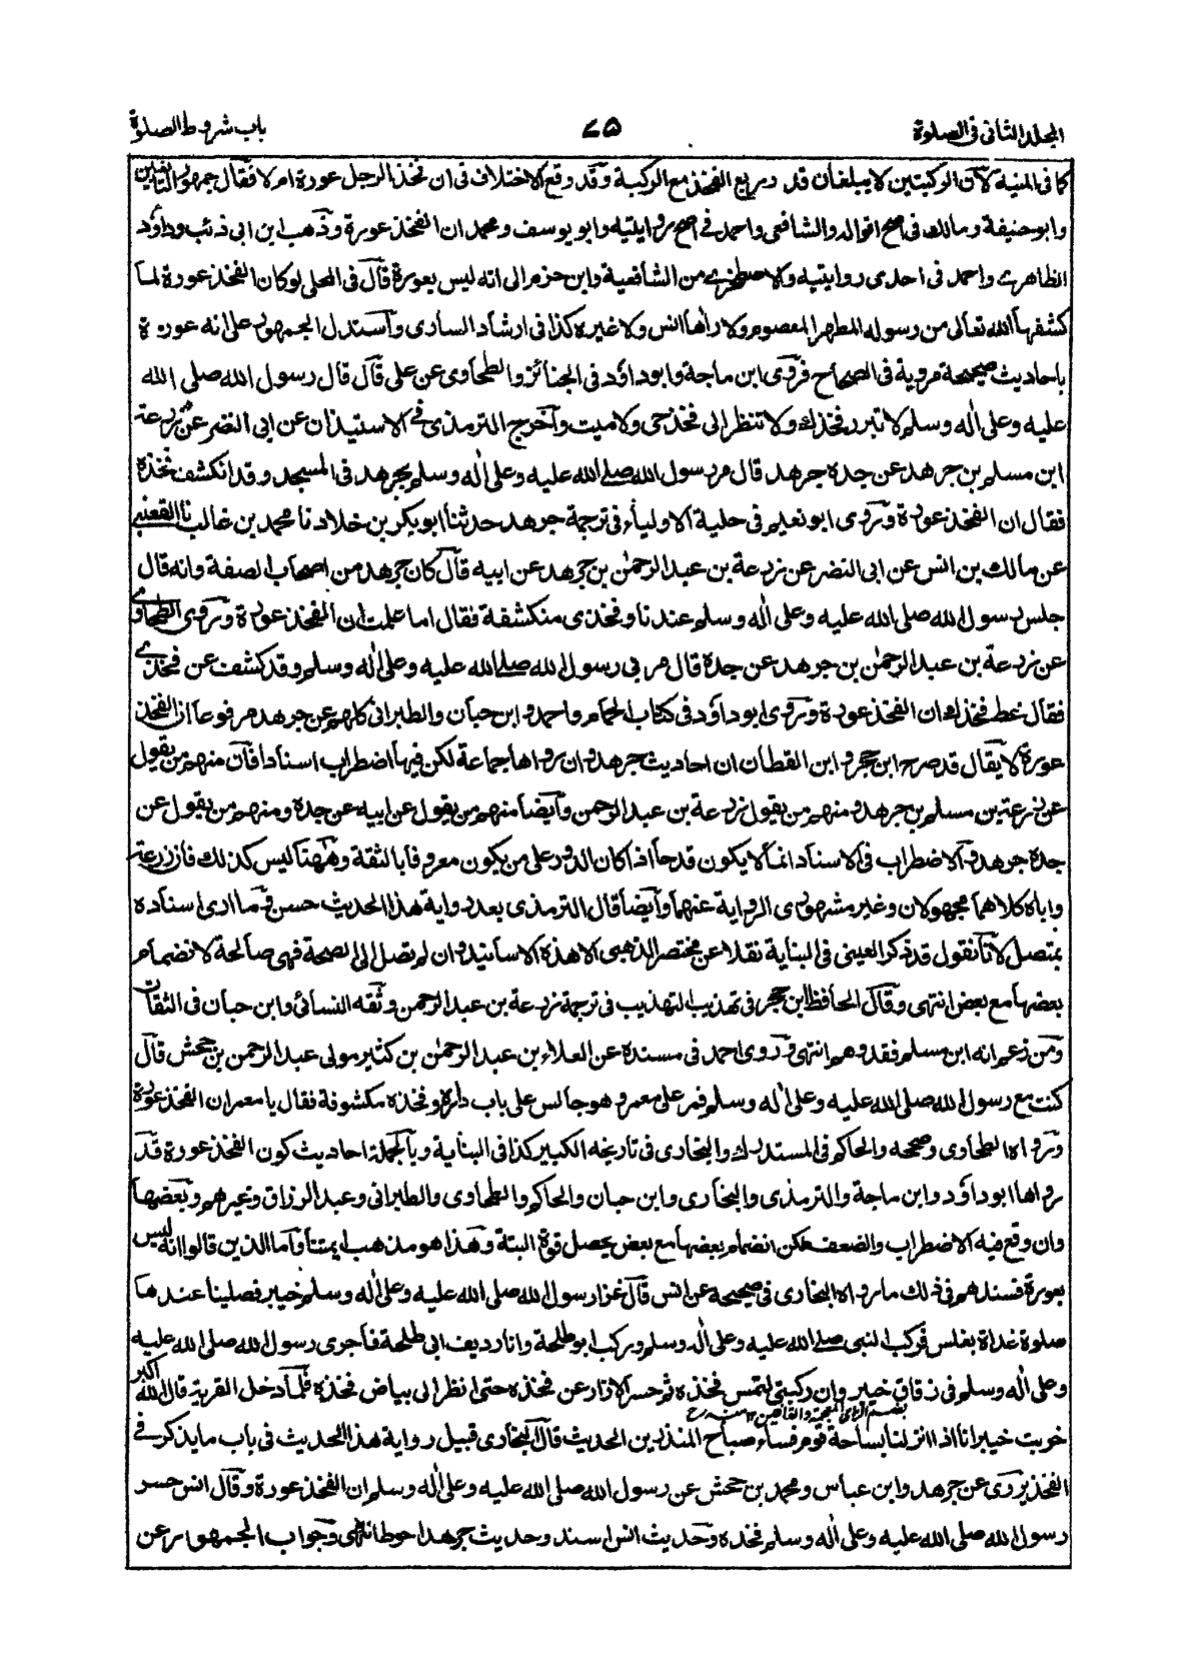 المجلد الثانى فى الصلوة
٧٥
باب شروط الصلوة
كما فى المنية لان الركبتين لا يبلغان قدر ربع الفخذ مع الركبة وقد وقع الاختلاف فى ان فخذ الرجل عورة ام لا فقال جمهور التابعين
وابو حنيفة ومالك فى اصح اقواله والشافعى واحمد فى اصح روايتيه وابو يوسف ومحمد ان الفخذ عورة وذهب ابن ابى ذئب وداؤد
الظاهرى واحمد فى احدى روايتيه والاصطخرى من الشافعية وابن حزم الى انه ليس بعورة قال فى المحلى لو كان الفخذ عورة لما
كشفها الله تعالى من رسوله المطهر المعصوم ولا راها انس ولا غيره كذا فى ارشاد السارى واستدل الجمهور على انه عورة
باحاديث صحيحة مروية فى الصحاح فروى ابن ماجة وابو داؤد فى الجنائز والطحاوى عن على قال قال رسول الله صلى الله
عليه وعلى اٰله وسلم لا تبرز فخذك ولا تنظر الى فخذ حى ولا ميت وأخرج الترمذى فى الاستيذان عن ابى النضر عن زرعة
ابن مسلم بن جرهد عن جده جرهد قال مر رسول الله صلى الله عليه وعلى اٰله وسلم بجرهد فى المسجد وقد انكشف فخذه
فقال ان الفخذ عورة وروى ابو نعيم فى حلية الاولياء فى ترجمة جرهد حدثنا ابو بكر بن خلاد نا محمد بن غالب نا القعنبى
عن مالك بن انس عن ابى النضر عن زرعة بن عبد الرحمٰن بن جرهد عن ابيه قال كان جرهد من اصحاب الصفة وانه قال
جلس رسول الله صلى الله عليه وعلى اٰله وسلم عندنا وفخذى منكشفة فقال اما علمت ان الفخذ عورة وروى الطحاوى
عن زرعة بن عبد الرحمٰن بن جرهد عن جده قال مر بى رسول الله صلى الله عليه وعلى اٰله وسلم وقد كشفت عن فخذى
فقال غط فخذك ان الفخذ عورة وروى ابو داؤد فى كتاب الحمام واحمد وابن حبان والطبرانى كلهم عن جرهد مرفوعا ان الفخذ
عورة لا يقال قد صرح ابن حجر وابن القطان ان احاديث جرهد وان رواها جماعة لكن فيها اضطراب اسنادا فان منهم من يقول
عن زرعة بن مسلم بن جرهد ومنهم من يقول زرعة بن عبد الرحمن وأيضا منهم من يقول عن ابيه عن جده ومنهم من يقول عن
جده جرهد والاضطراب فى الاسناد انما لا يكون قدحا اذا كان الدور على من يكون معروفا بالثقة وههنا ليس كذلك فان زرعة
واباه كلاهما مجهولان وغير مشهورى الرواية عنهما وأيضا قال الترمذى بعد رواية هذا الحديث حسن وما ارى اسناده
بمتصل لانا نقول قد ذكر العينى فى البناية نقلا عن مختصر الذهبى الا هذه الاسانيد وان لم تصل الى الصحة فهى صالحة لانضمام
بعضها مع بعض انتهى وقال الحافظ ابن حجر فى تهذيب التهذيب فى ترجمة زرعة بن عبد الرحمن وثقه النسائى وابن حبان فى الثقات
ومن زعم انه ابن مسلم فقد وهم انتهى وروى احمد فى مسنده عن العلاء بن عبد الرحمٰن بن كثير مولى عبد الرحمن بن جحش قال
كنت مع رسول الله صلى الله عليه وعلى اٰله وسلم فمر على معمر وهو جالس على باب داره وفخذه مكشوفة فقال يا معمر ان الفخذ عورة
ورواه الطحاوى وصححه والحاكم فى المستدرك والبخارى فى تاريخه الكبير كذا فى البناية وبالجملة احاديث كون الفخذ عورة قد
رواها ابو داؤد وابن ماجة والترمذى والبخارى وابن حبان والحاكم والطحاوى والطبرانى وعبد الرزاق وغيرهم وبعضها
وان وقع فيه الاضطراب والضعف لكن انضمام بعضها مع بعض يحصل قوة البتة وهذا هو مذهب ايمتنا واما الذين قالوا انه ليس
بعورة فسندهم فى ذلك ما رواه البخارى فى صحيحه عن انس قال غزا رسول الله صلى الله عليه وعلى اٰله وسلم خيبر فصلينا عندها
صلوة غداة بغلس فركب النبى صلى الله عليه وعلى اٰله وسلم وركب ابو طلحة وانا رديف ابى طلحة فاجرى رسول الله صلى الله عليه
وعلى اٰله وسلم فى زقاق خيبر وان ركبتى لتمس فخذه ثم حسر الازار عن فخذه حتى انظر الى بياض فخذه فلما دخل القرية قال الله اكبر
خربت خيبر انا اذا نزلنا بساحة قوم فساء صباح المنذرين الحديث قال البخارى قبيل رواية هذا الحديث فى باب ما يذكر فى
الفخذ يروى عن جرهد وابن عباس ومحمد بن جحش عن رسول الله صلى الله عليه وعلى اٰله وسلم ان الفخذ عورة وقال انس حسر
رسول الله صلى الله عليه وعلى اٰله وسلم فخذه وحديث انس اسند وحديث جرهد احوط انتهى وجواب الجمهور عن